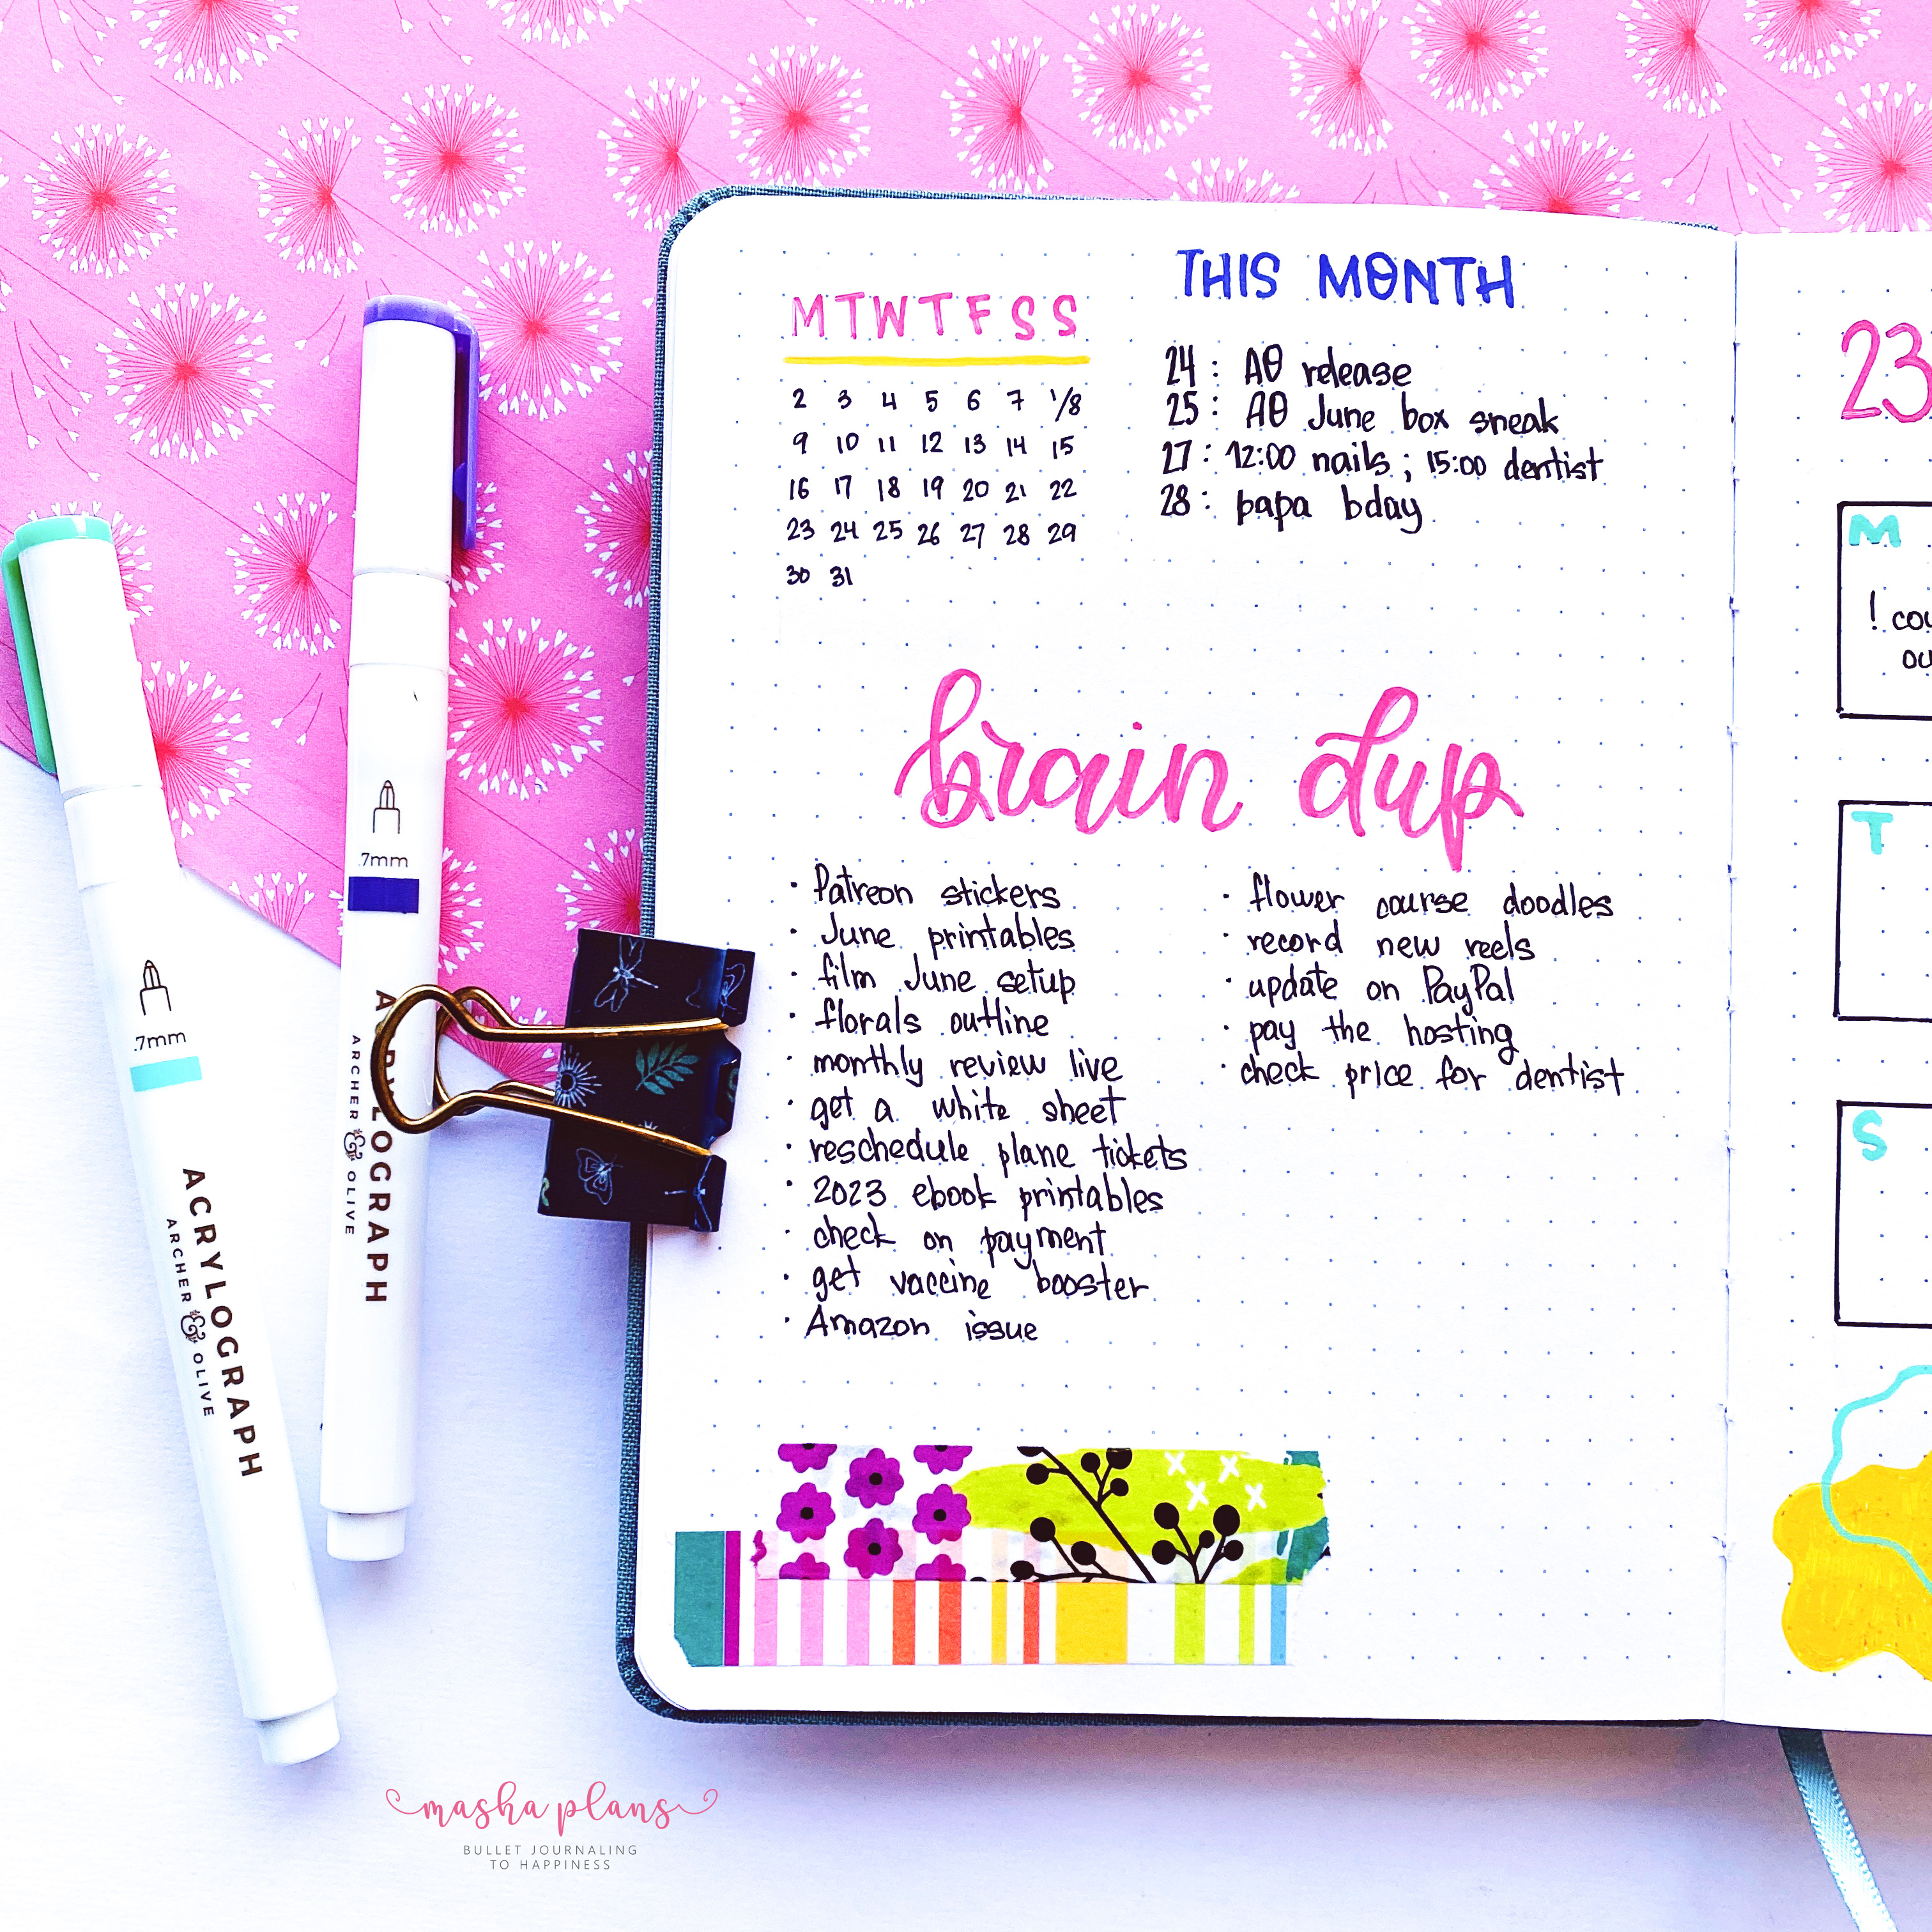 M T W T F S S
2 3 4 5 6 7 1/8
9 10 11 12 13 14 15
16 17 18 19 20 21 22
23 24 25 26 27 28 29
30 31
THIS MONTH
24: AO release
25: AO June box sneak
27: 12:00 nails; 15:00 dentist
28: papa bday
brain dup
· Patreon stickers
· June printables
· film June setup
· florals outline
· monthly review live
· get a white sheet
· reschedule plane tickets
· 2023 ebook printables
· check on payment
· get vaccine booster
· Amazon issue
· flower course doodles
· record new reels
· update on PayPal
· pay the hosting
· check price for dentist
23
M
! cou
ou
T
S
.7mm
ACRYLOGRAPH
ARCHER & OLIVE
.7mm
ACRYLOGRAPH
ARCHER & OLIVE
masha plans
BULLET JOURNALING
TO HAPPINESS